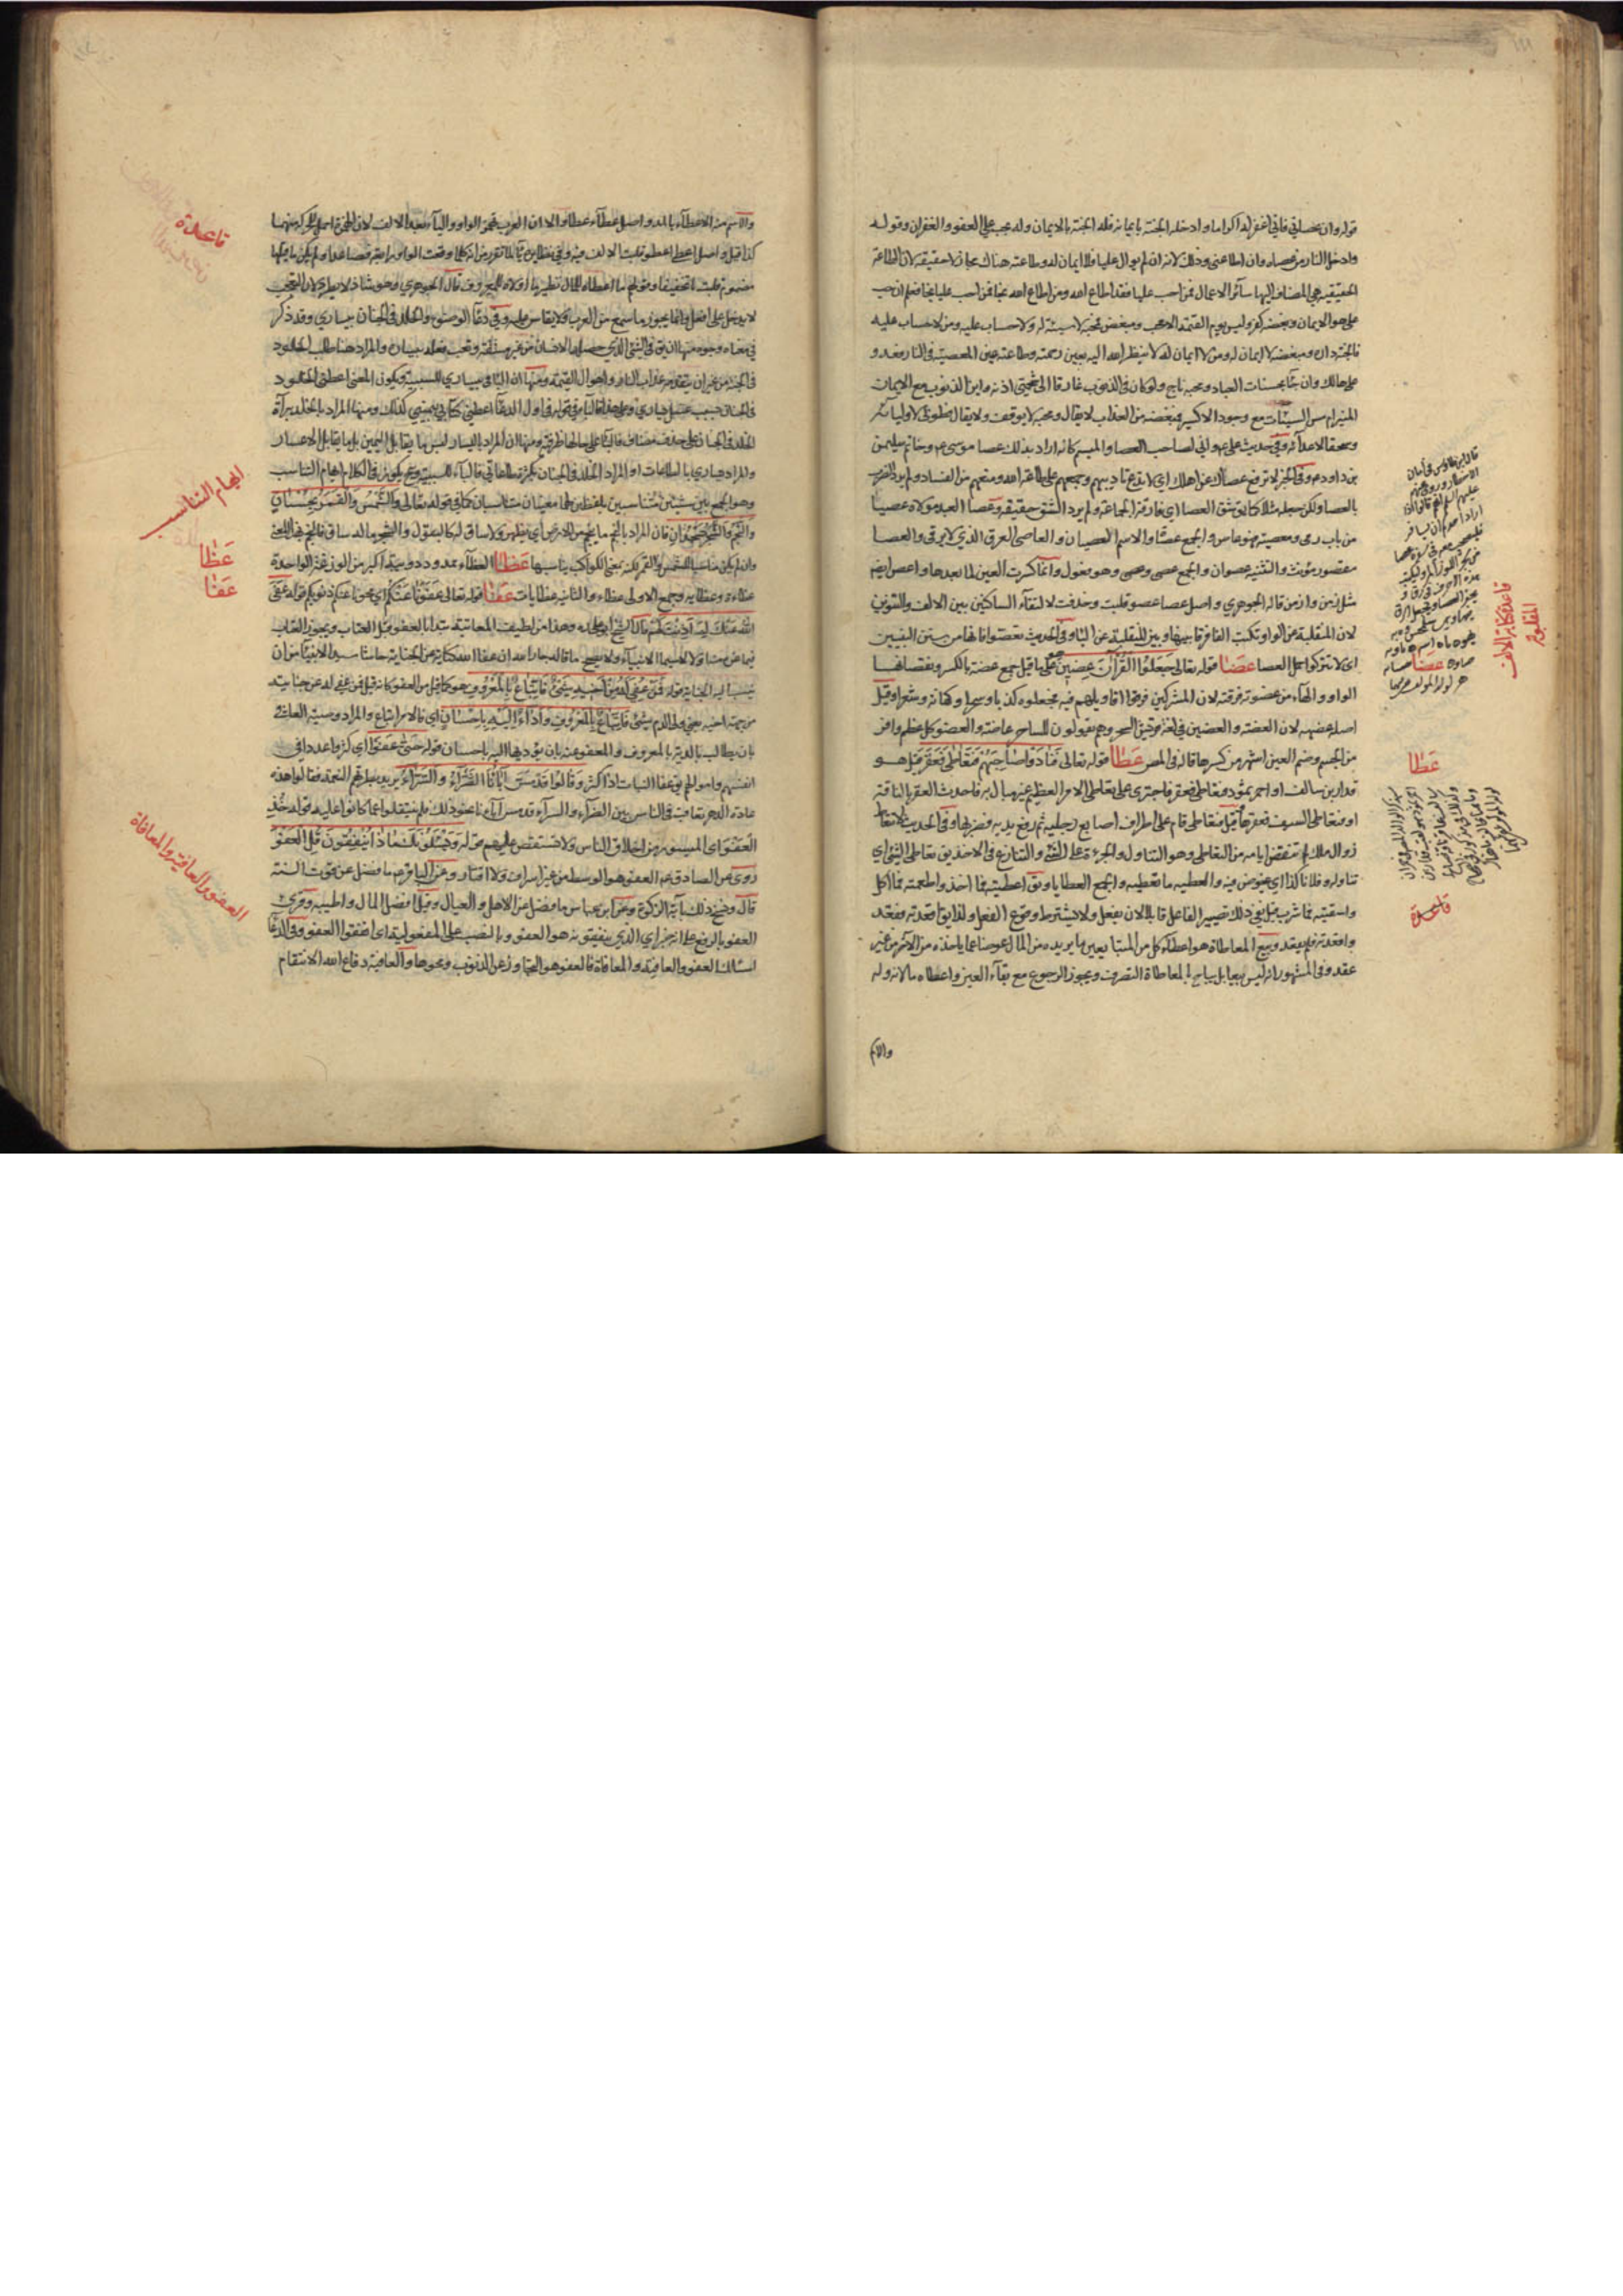 قوله وان عصاني فاني اغفر له اكراما وادخله الجنة بايمانه فله الجنة بالايمان وله بحب علي العفو والغفران وقوله
وادخل النار من عصاه وان اطاعني وذلك لانه ان لم يوال عليا فلا ايمان له وطاعته هناك مجاز لا حقيقة لان الطاعة
الحقيقية هي المضاف اليها سائر الاعمال فمن احب عليا فقد اطاع الله ومن اطاع الله نجا فمن احب عليا نجا فعلم ان حب
علي هو الايمان وبغضه كفر وليس يوم القيمة الا محب ومبغض فمحبه لا سيئة له ولا حساب عليه ومن لا حساب عليه
فالجنة داره ومبغضه لا ايمان له ومن لا ايمان له لا ينظر الله اليه بعين رحمته وطاعته عين المعصية في النار فعدو
علي هالك وان جاء بحسنات العباد ومحبه ناج ولو كان في الذنوب غارقا الى شحمتي اذنه واين الذنوب مع الايمان
المنير ام مس السيئات مع وجود الاكسير فمبغضه من العذاب لا يقال ومحبه لا يوقف ولا يقال فطوبى لاوليائه
وسحقا لاعدائه وفي حديث علي ع واني لصاحب العصا والميسم كانه اراد بذلك عصا موسى ع وخاتم سليمن
بن داود ع وفي الخبر لا ترفع عصاك عن اهلك اي لا تدع تاديبهم وجمعهم على طاعة الله ومنعهم من الفساد ولم يرد الضرب
بالعصا ولكن جعله مثلا كما يق شق العصا اي فارق الجماعة ولم يرد الشق حقيقة وعصا العبد مولاه عصيا
من باب رمى ومعصية فهو عاص والجمع عصاة والاسم العصيان والعاصي العرق الذي لا يرقى والعصا
مقصور مؤنث والتثنية عصوان والجمع عصي وعصى وهو فعول وانما كسرت العين لما بعدها واعص ايضا
مثل زمن وازمن قاله الجوهري واصل عصا عصو قلبت وحذفت لالتقاء الساكنين بين الالف والتنوين
لان المنقلبة عن الواو تكتب الفا فرقا بينها وبين المنقلبة عن الياء وفي الحديث تعصوا فانها من سنن النبيين
اي لا تتركوا حمل العصا عضا قوله تعالى جعلوا القرآن عضين قيل جمع عضة بالكسر ونقصانها
الواو والهاء من عضوته فرقته لان المشركين فرقوا اقاويلهم فيه فجعلوه كذبا وسحرا وكهانة وشعرا وقيل
اصله عضهة لان العضة والعضين في لغة قريش السحر وهم يقولون للساحر عاضه والعضو كل عظم وافر
من الجسم وضم العين اشهر من كسرها قاله في المص عطا قوله تعالى فنادوا صاحبهم فتعاطى فعقر قيل هو
قدار بن سالف او احمر ثمود وتعاطى فعقر فاجترى على تعاطي الامر العظيم غير مبال به فاحدث العقر بالناقة
او فتعاطى السيف فعقرها قيل فتعاطى قام على اطراف اصابع رجليه ثم رفع يديه فضربها وفي الحديث لا تتعاط
زوال ملك لم تنقض ايامه من التعاطي وهو التناول والجرءة على الشيء والتنازع في الاخذ يق تعاطى الشيء اي
تناوله وفلانا كذا اي خوض فيه والعطية ما تعطيه والجمع العطايا ويق اعطيته فما اخذ واطعمته فما اكل
واسقيته فما شرب قيل في ذلك تصيير الفاعل قابلا لان يفعل ولا يشترط وقوع الفعل ولذا يق اقعدته فقعد
واقعدته فلم يقعد وبيع المعاطاة هو اعطاء كل من المتبايعين ما يريده من المال عوضا عما ياخذه من الاخر من غير
عقد وفي المشهور انه ليس بيعا بل يباح بالمعاطاة التصرف ويجوز الرجوع مع بقاء العين واعطاه مالا ناوله
والاسم
قاعدة كتابة الالف
المقلوبة
عضا
عطا
قاعدة
والاسم من الاعطاء بالمد واصل عطاء عطاو الا ان العرب تهمز الواو والياء بعد الالف لان الهمزة احمل للحركة منهما
كذا قيل واصل اعطى اعطو قلبت الالف فيه وفي نظايره ياء لما تقرر من انه كلما وقعت الواو رابعة فصاعدا ولم يكن ما قبلها
مضموما قلبت ياء تخفيفا وقولهم ما اعطاه للمال نظير ما اولاه للمعروف قال الجوهري وهو شاذ لا يطرد لان التعجب
لا يدخل على افعل وانما يجوز ما سمع من العرب ولا يقاس عليه وفي دعاء الوضوء والخلد في الجنان بيساري وقد ذكر
في معناه وجوه منها ان يق في الشيء الذي حصله الانسان من غير مشقة وتعب فعله بيساره والمراد هنا طلب الخلود
في الجنة من غير ان يتقدمه عذاب النار واهوال القيمة ومنها ان الباء في بيساري للسببية ويكون المعنى اعطني الخلود
في الجنان بسبب غسل يساري وعلى هذا فالباء في قوله في اول الدعاء اعطني كتابي بيميني كذلك ومنها المراد بالخلد براءة
الخلد في الجنان على حذف مضاف فالباء على حالها ظرفية ومنها ان المراد باليسار ليس ما يقابل اليمين بل ما يقابل الاعسار
والمراد يساري بالطاعات او المراد الخلد في الجنان بكثرة طاعاتي فالباء للسببية وح يكون في الكلام ايهام التناسب
وهو الجمع بين شيئين متناسبين بلفظين لهما معنيان متناسبان كما في قوله تعالى والشمس والقمر بحسبان
والنجم والشجر يسجدان فان المراد بالنجم ما ينجم من الارض اي يظهر ولا ساق له كالبقول والشجر ما له ساق فالنجم بهذا المعنى
وان لم يكن مناسبا للشمس والقمر لكنه بمعنى الكواكب يناسبها عظا العظاءة ممدود دويبة اكبر من الوزغة الواحدة
عظاءة وعظاية وجمع الاولى عظاء والثانية عظايات عفا قوله تعالى عفونا عنكم اي محونا عنكم ذنوبكم قوله عفى
الله عنك لم اذنت لهم قال الشيخ ابو علي ره وهذا من لطيف المعاتبة بدأنا بالعفو قبل العتاب ويجوز العتاب
فيما غيره منه اولى لا سيما الانبياء ولا يصح ما قاله جار الله ان عفا الله كناية عن الجناية حاشا سيد الانبياء من ان
ينسب اليه الجناية قوله فمن عفي له من اخيه شيء فاتباع بالمعروف هو كما قيل من العفو كانه قيل فمن عفي له عن جنايته
من جهة اخيه يعني ولي الدم شيء فاتباع بالمعروف واداء اليه باحسان اي فالامر اتباع والمراد وصية العافي
بان يطالب بالدية بالمعروف والمعفو عنه بان يؤديها اليه باحسان قوله حتى عفوا اي كثروا عددا في
انفسهم واموالهم يق عفا النبات اذا كثر وقالوا قد مس آباءنا الضراء والسراء يريد بطرتهم النعمة فقالوا هذه
عادة الدهر تعاقب في الناس بين الضراء والسراء وقد مس آباءنا نحو ذلك فلم ينتقلوا عما كانوا عليه قوله خذ
العفو اي الميسور من اخلاق الناس ولا تستقص عليهم قوله ويسئلونك ماذا ينفقون قل العفو
روي عن الصادق ع العفو هو الوسط من غير اسراف ولا اقتار وعن الباقر ع ما فضل عن قوت السنة
قال ونسخ ذلك بآية الزكوة وعن ابن عباس ما فضل عن الاهل والعيال وقيل افضل المال واطيبه وقرئ
العفو بالرفع على انه خبر اي الذي ينفقونه هو العفو وبالنصب على المفعولية اي انفقوا العفو وفي الدعاء
اسئلك العفو والعافية والمعافاة فالعفو هو التجاوز عن الذنوب ومحوها والعافية دفاع الله الانتقام
قاعدة
ايهام التناسب
عظا
عفا
العفو والعافية والمعافاة